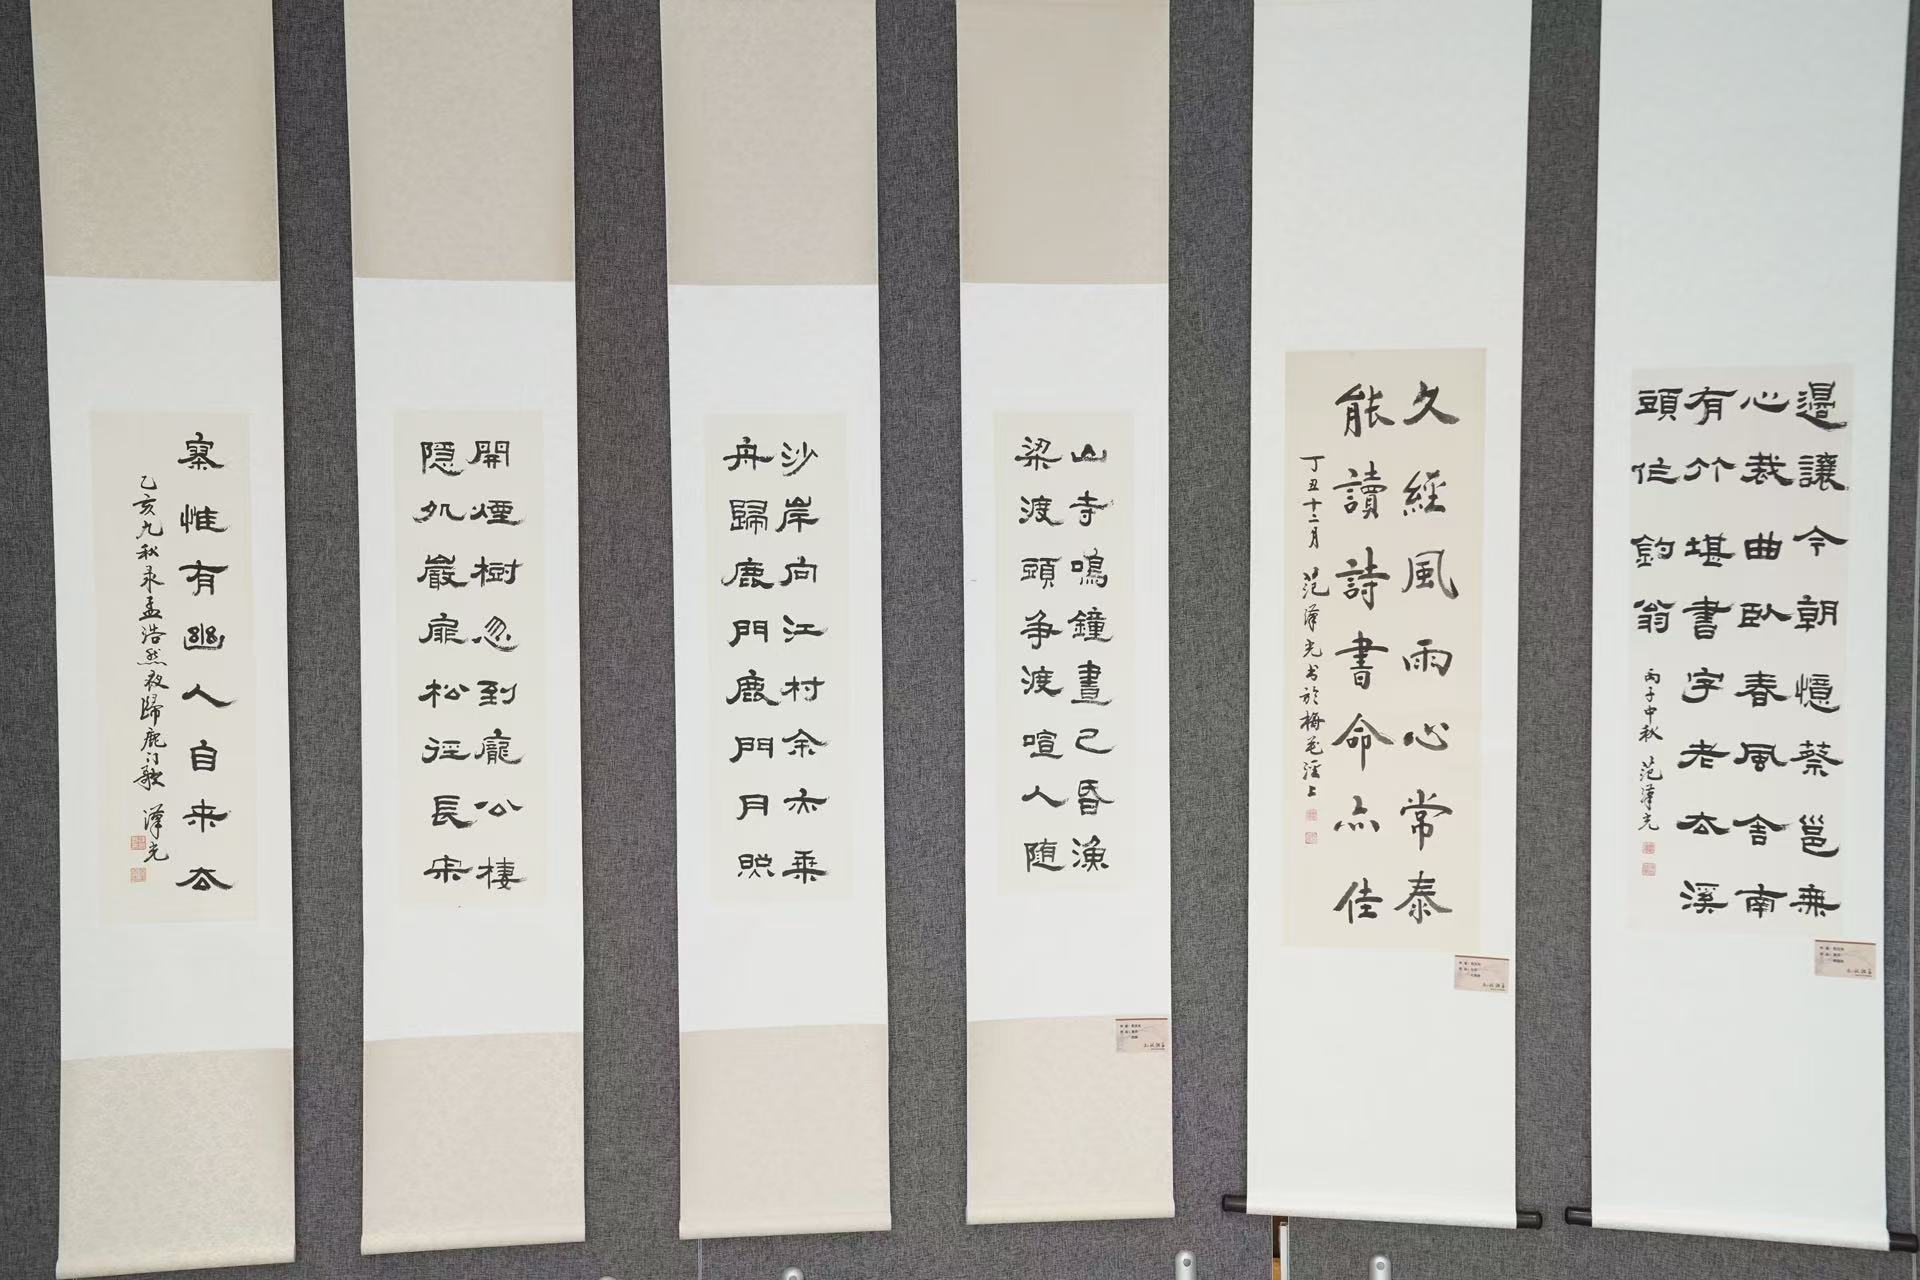 邊讓今朝憶蔡邕無
心裁曲臥春風舍南
有竹堪書字老去溪
頭作釣翁
丙子中秋 范澤光
久經風雨心常泰
能讀詩書命亦佳
丁丑十二月 范澤光书於梅花上
山寺鳴鐘晝已昏漁
梁渡頭争渡喧人随
沙岸向江村余亦乘
舟歸鹿門鹿門月照
開煙樹忽到龐公棲
隐処巖扉松徑長寂
寥惟有幽人自来去
乙亥九秋录孟浩然夜歸鹿门歌 澤光